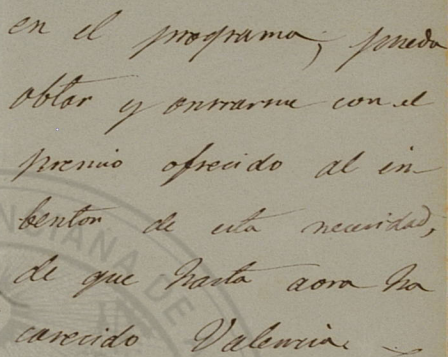 en el programa; pueda
obtar y onrrarme con el
premio ofrecido al in-
bentor de esta necesidad,
de que hasta aora ha
carecido Valencia.